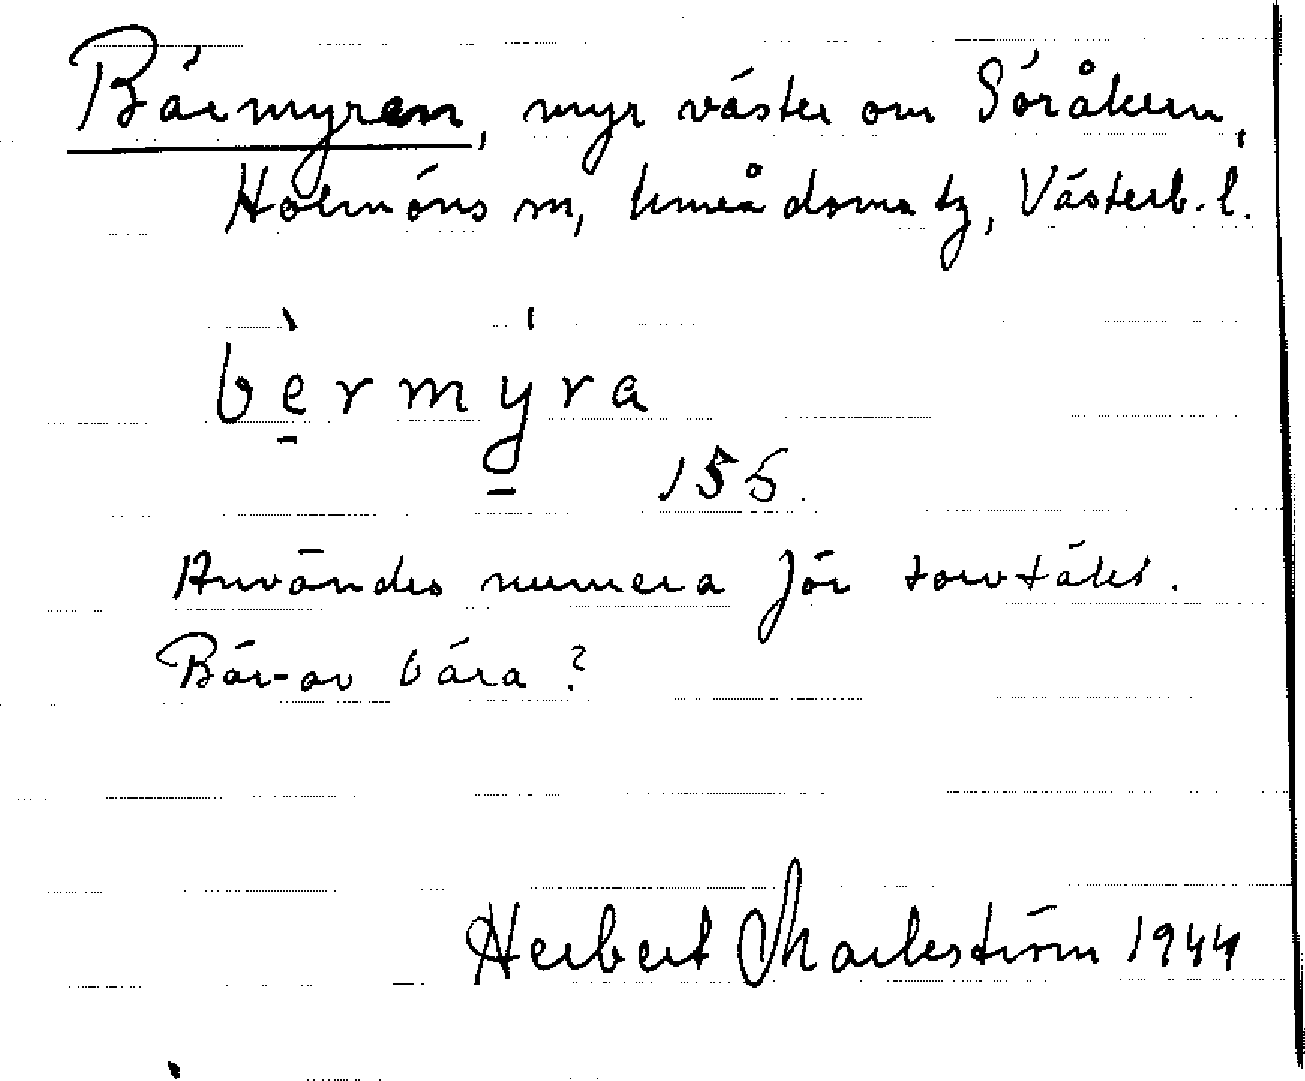 Bärmyren, myr väster om Söråkern,
Holmöns sn, Umeå doms tg, Västerb. l.
bèrmýra
155.
Användes numera för torvtäkt.
Bär- av bära?
Herbert Markström 1944